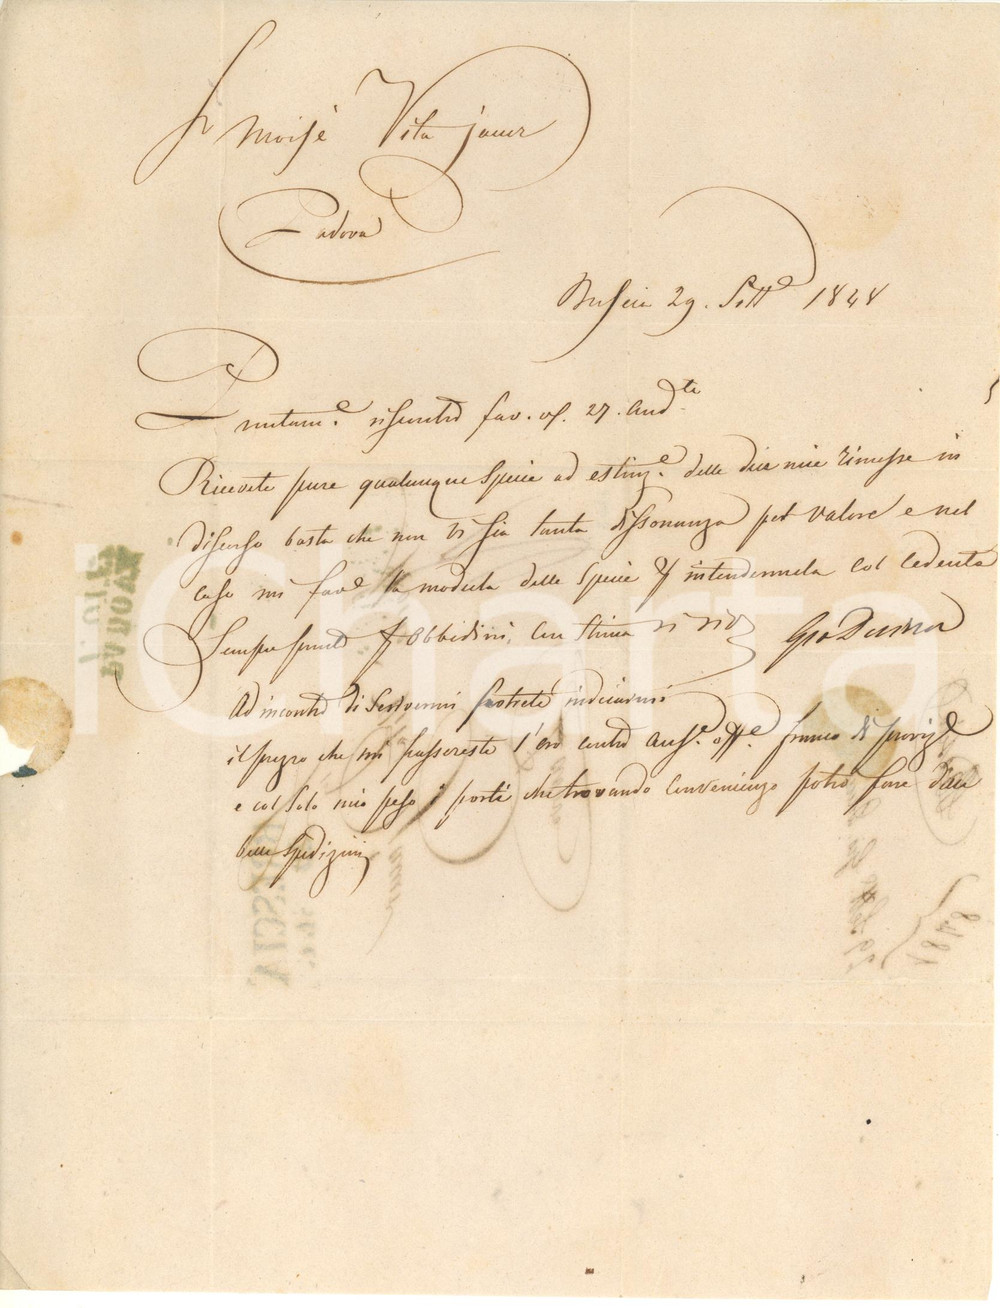 Sr Moisè Vita Jacur
Padova
Brescia 29. Sette 1848
Puntame riscontro fav. vs. 27. andte
Ricevete pure qualunque Specie ad estinze delle due mie rimesse in
discorso basta che non vi sia tanta dissonanza pel valore e nel
caso mi fare la modula delle Specie p intendermela col Cedente
Sempre pronto p Obbedirvi, con stima vi rivo Gio
Ad incontro di Scrivermi potrete indicarmi
il prezzo che mi passereste l'oro contro Ause offe franco di provige
e col solo mio peso i porti che trovando Convenienza potrò fare
belle Spedizioni
iCharta
PADOVA
BRESCIA
1848